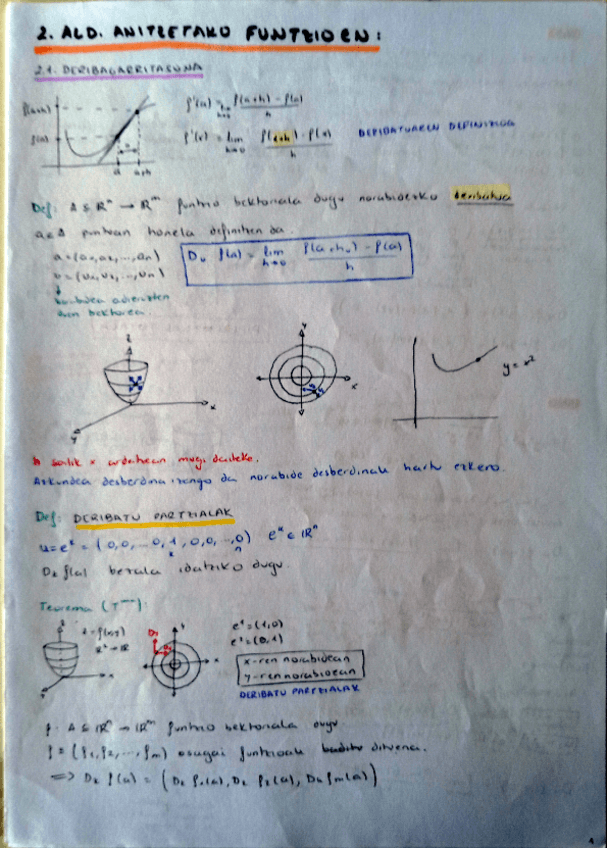 2. ALD. ANITZETAKO FUNTZIOEN:
2.1. DERIBAGARRITASUNA
f(a+h)
f(a)
h
a a+h
f'(a) = lim h→0 f(a+h) - f(a) / h
f'(x) = lim h→0 f(x+h) - f(x) / h
DERIBATUAREN DEFINIZIOA
Def: A ⊆ ℝⁿ → ℝᵐ funtzio bektoriala dugu norabidezko deribatua
a ∈ A puntuan honela definitzen da
a = (a₁, a₂, ..., aₙ)
u = (u₁, u₂, ..., uₙ)
Dᵤ f(a) = lim h→0 f(a+hᵤ) - f(a) / h
norabidea adierazten
duen bektorea.
z
x
y
y
x
y = x²
h soilik x ardatzean mugi daiteke.
Azkundea desberdina izango da norabide desberdinak hartu ezkero.
Def: DERIBATU PARTZIALAK
u = eᵏ = (0,0,...0,1,0,0,...,0) eᵏ ∈ ℝⁿ
k n
Dₖ f(a) bezala idatziko dugu
Teorema (Tᵐᵃ):
z
x
y
z = f(x,y)
ℝ² → ℝ
y
x
D₂
D₁
e¹ = (1,0)
e² = (0,1)
x-ren norabidean
y-ren norabidean
DERIBATU PARTZIALAK
f: A ⊆ ℝⁿ → ℝᵐ funtzio bektoriala dugu
f = (f₁, f₂, ..., fₘ) osagai funtzioak dituena.
⟹ Dₖ f(a) = (Dₖ f₁(a), Dₖ f₂(a), Dₖ fₘ(a))